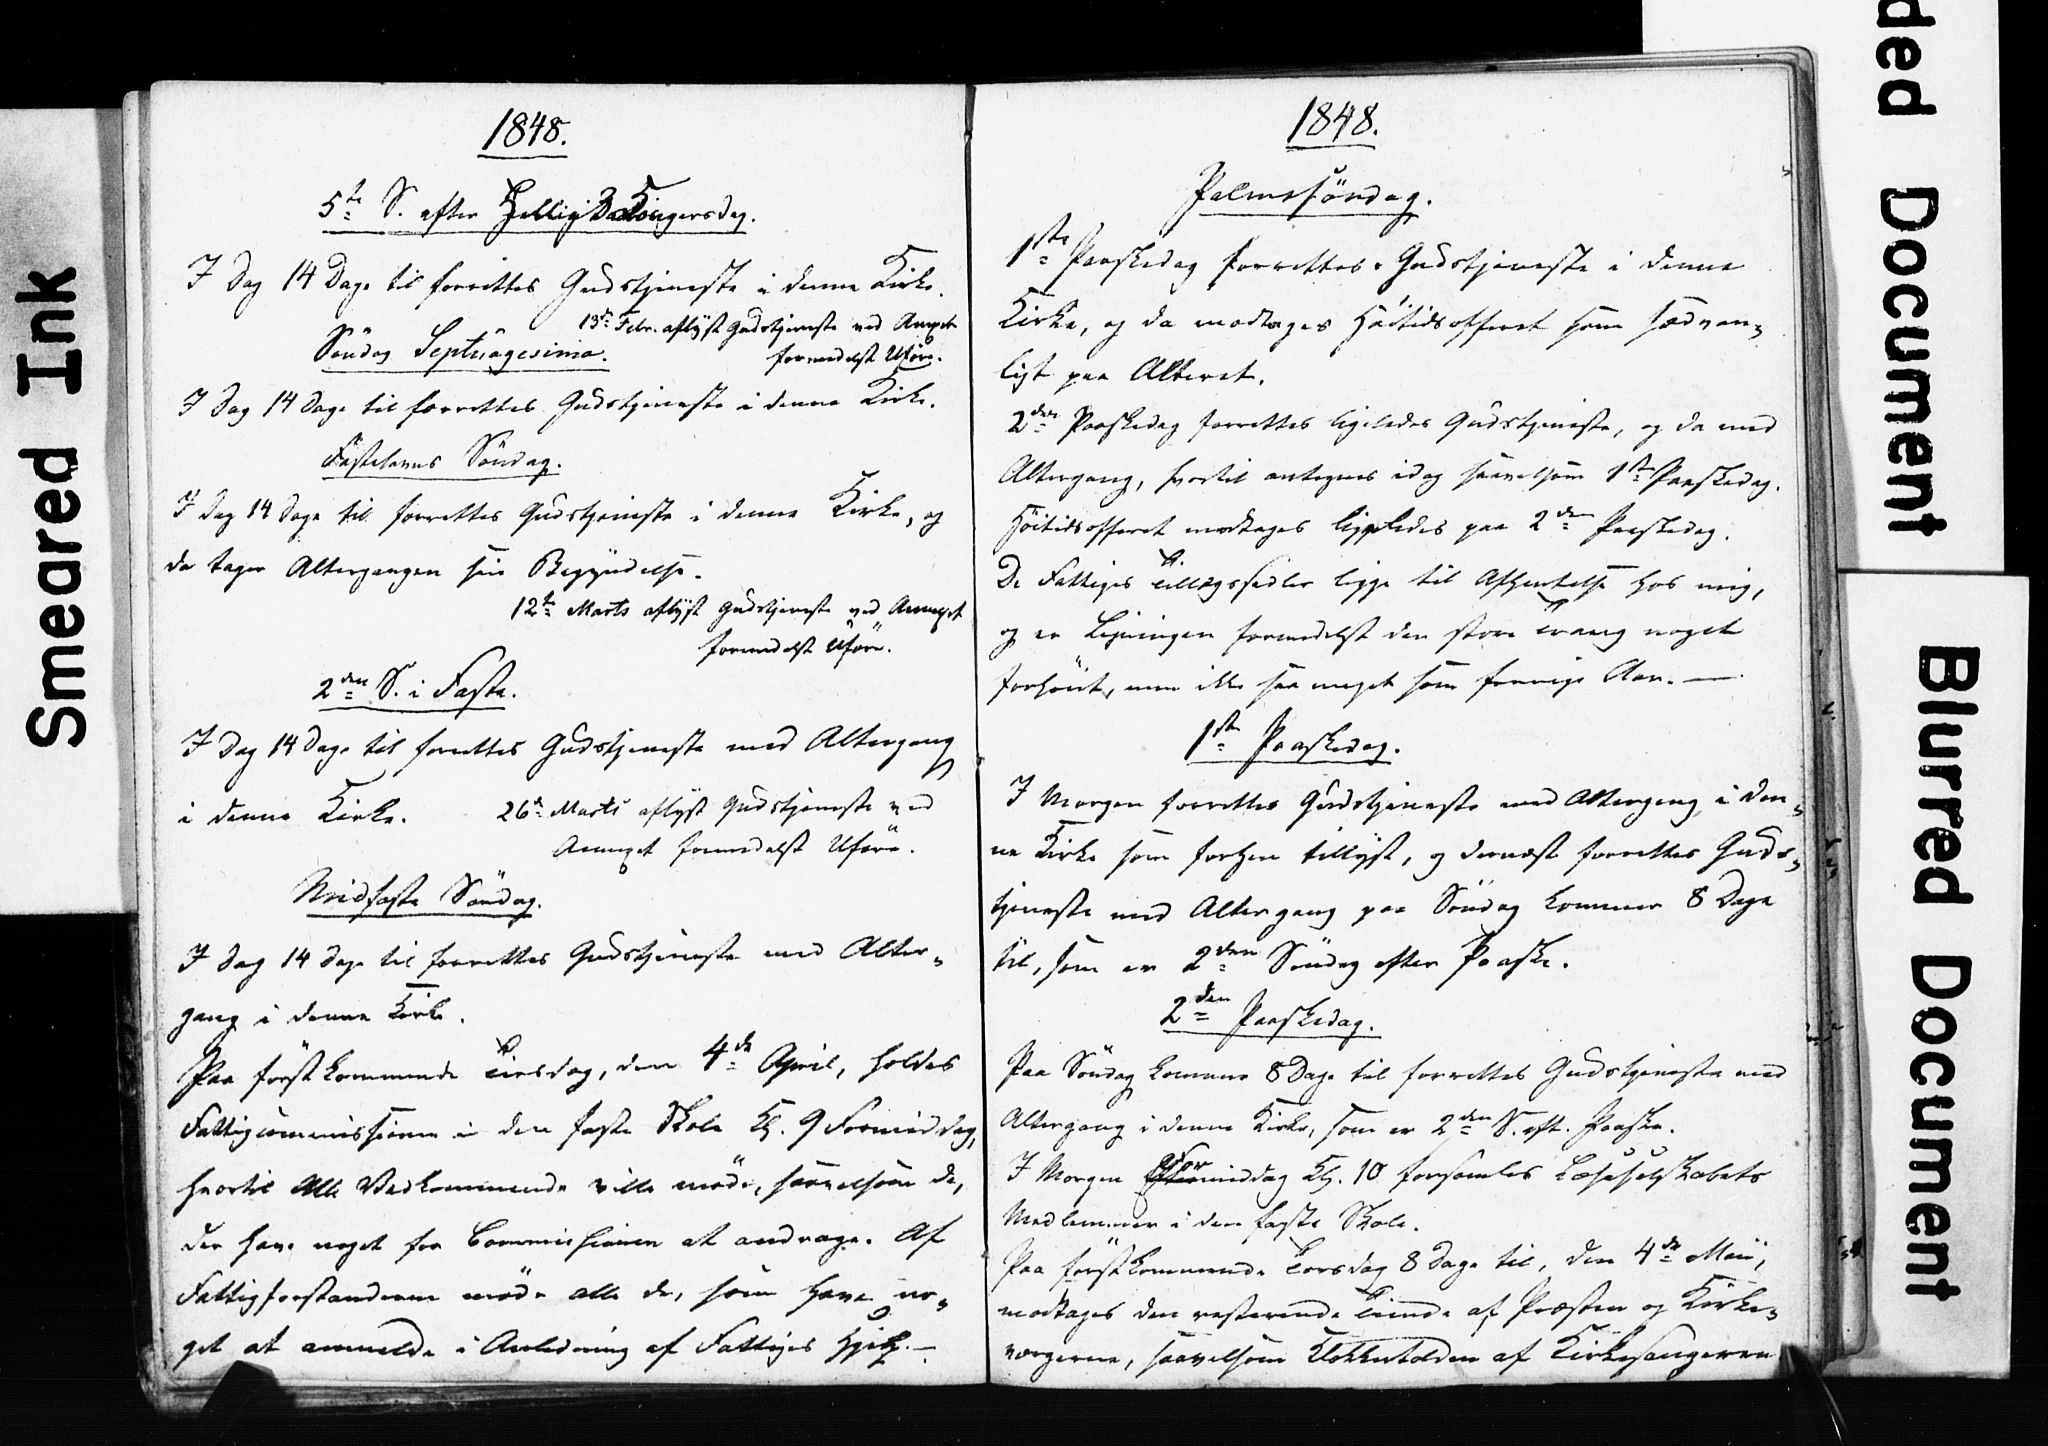 Smeared Ink
1848.
5te S. efter Hellig 3 Kongersdag.
I Dag 14 Dage til forrettes Gudstjeneste i denne Kirke.
13de Febr. aflyst Gudstjeneste ved Annexet
formedelst Uføre.
Søndag Septuagesima.
I Dag 14 Dage til forrettes Gudstjeneste i denne Kirke.
Fastelavns Søndag.
I Dag 14 Dage til forrettes Gudstjeneste i denne Kirke, og
da tager Altergangen sin Begyndelse.
12te Marts aflyst Gudstjeneste ved Annexet
formedelst Uføre.
2den S. i Faste.
I Dag 14 Dage til forrettes Gudstjeneste med Altergang
i denne Kirke.
26de Marts aflyst Gudstjeneste ved
Annexet formedelst Uføre.
Midfaste Søndag.
I Dag 14 Dage til forrettes Gudstjeneste med Alter-
gang i denne Kirke.
Paa førstkommende Tirsdag, den 4de April, holdes
Fattigcommissionen i den faste Skole Kl. 9 Formiddag,
hvortil alle Vedkommende ville møde, saavelsom de,
der have noget for Commissionen at andrage. Af
Fattigforstanderne møde alle de, som have no-
get at anmelde i Anledning af Fattiges Hjelp.—
1848.
Palmesøndag.
1ste Paaskedag forrettes Gudstjeneste i denne
Kirke, og da modtages Høitidsofferet som sædvan-
ligt paa Alteret.
2den Paaskedag forrettes ligeledes Gudstjeneste, og da med
Altergang, hvortil antegnes idag saavelsom 1ste Paaskedag.
Høitidsofferet modtages ligeledes paa 2den Paaskedag.
De Fattiges Tillægssedler ligge til Afhentelse hos mig,
og er Ligningen formedelst den store Trang noget
forhøiet, men ikke saa meget som forrige Aar. —
1ste Paaskedag.
I Morgen forrettes Gudstjeneste med Altergang i den-
ne Kirke som forhen tillyst, og dernæst forrettes Guds-
tjeneste med Altergang paa Søndag kommer 8 Dage
til, som er 2den Søndag efter Paaske.
2den Paaskedag.
Paa Søndag kommer 8 Dage til forrettes Gudstjeneste med
Altergang i denne Kirke, som er 2den S. eft. Paaske.
I Morgen Formiddag Kl. 10 forsamles Læseselskabets
Medlemmer i den faste Skole.
Paa førstkommende Torsdag 8 Dage til, den 4de Mai,
modtages den resterende Tiende af Præsten og Kirke-
værgerne, saavelsom Klokketolden af Kirkesangeren
ded Document
Blurred Document